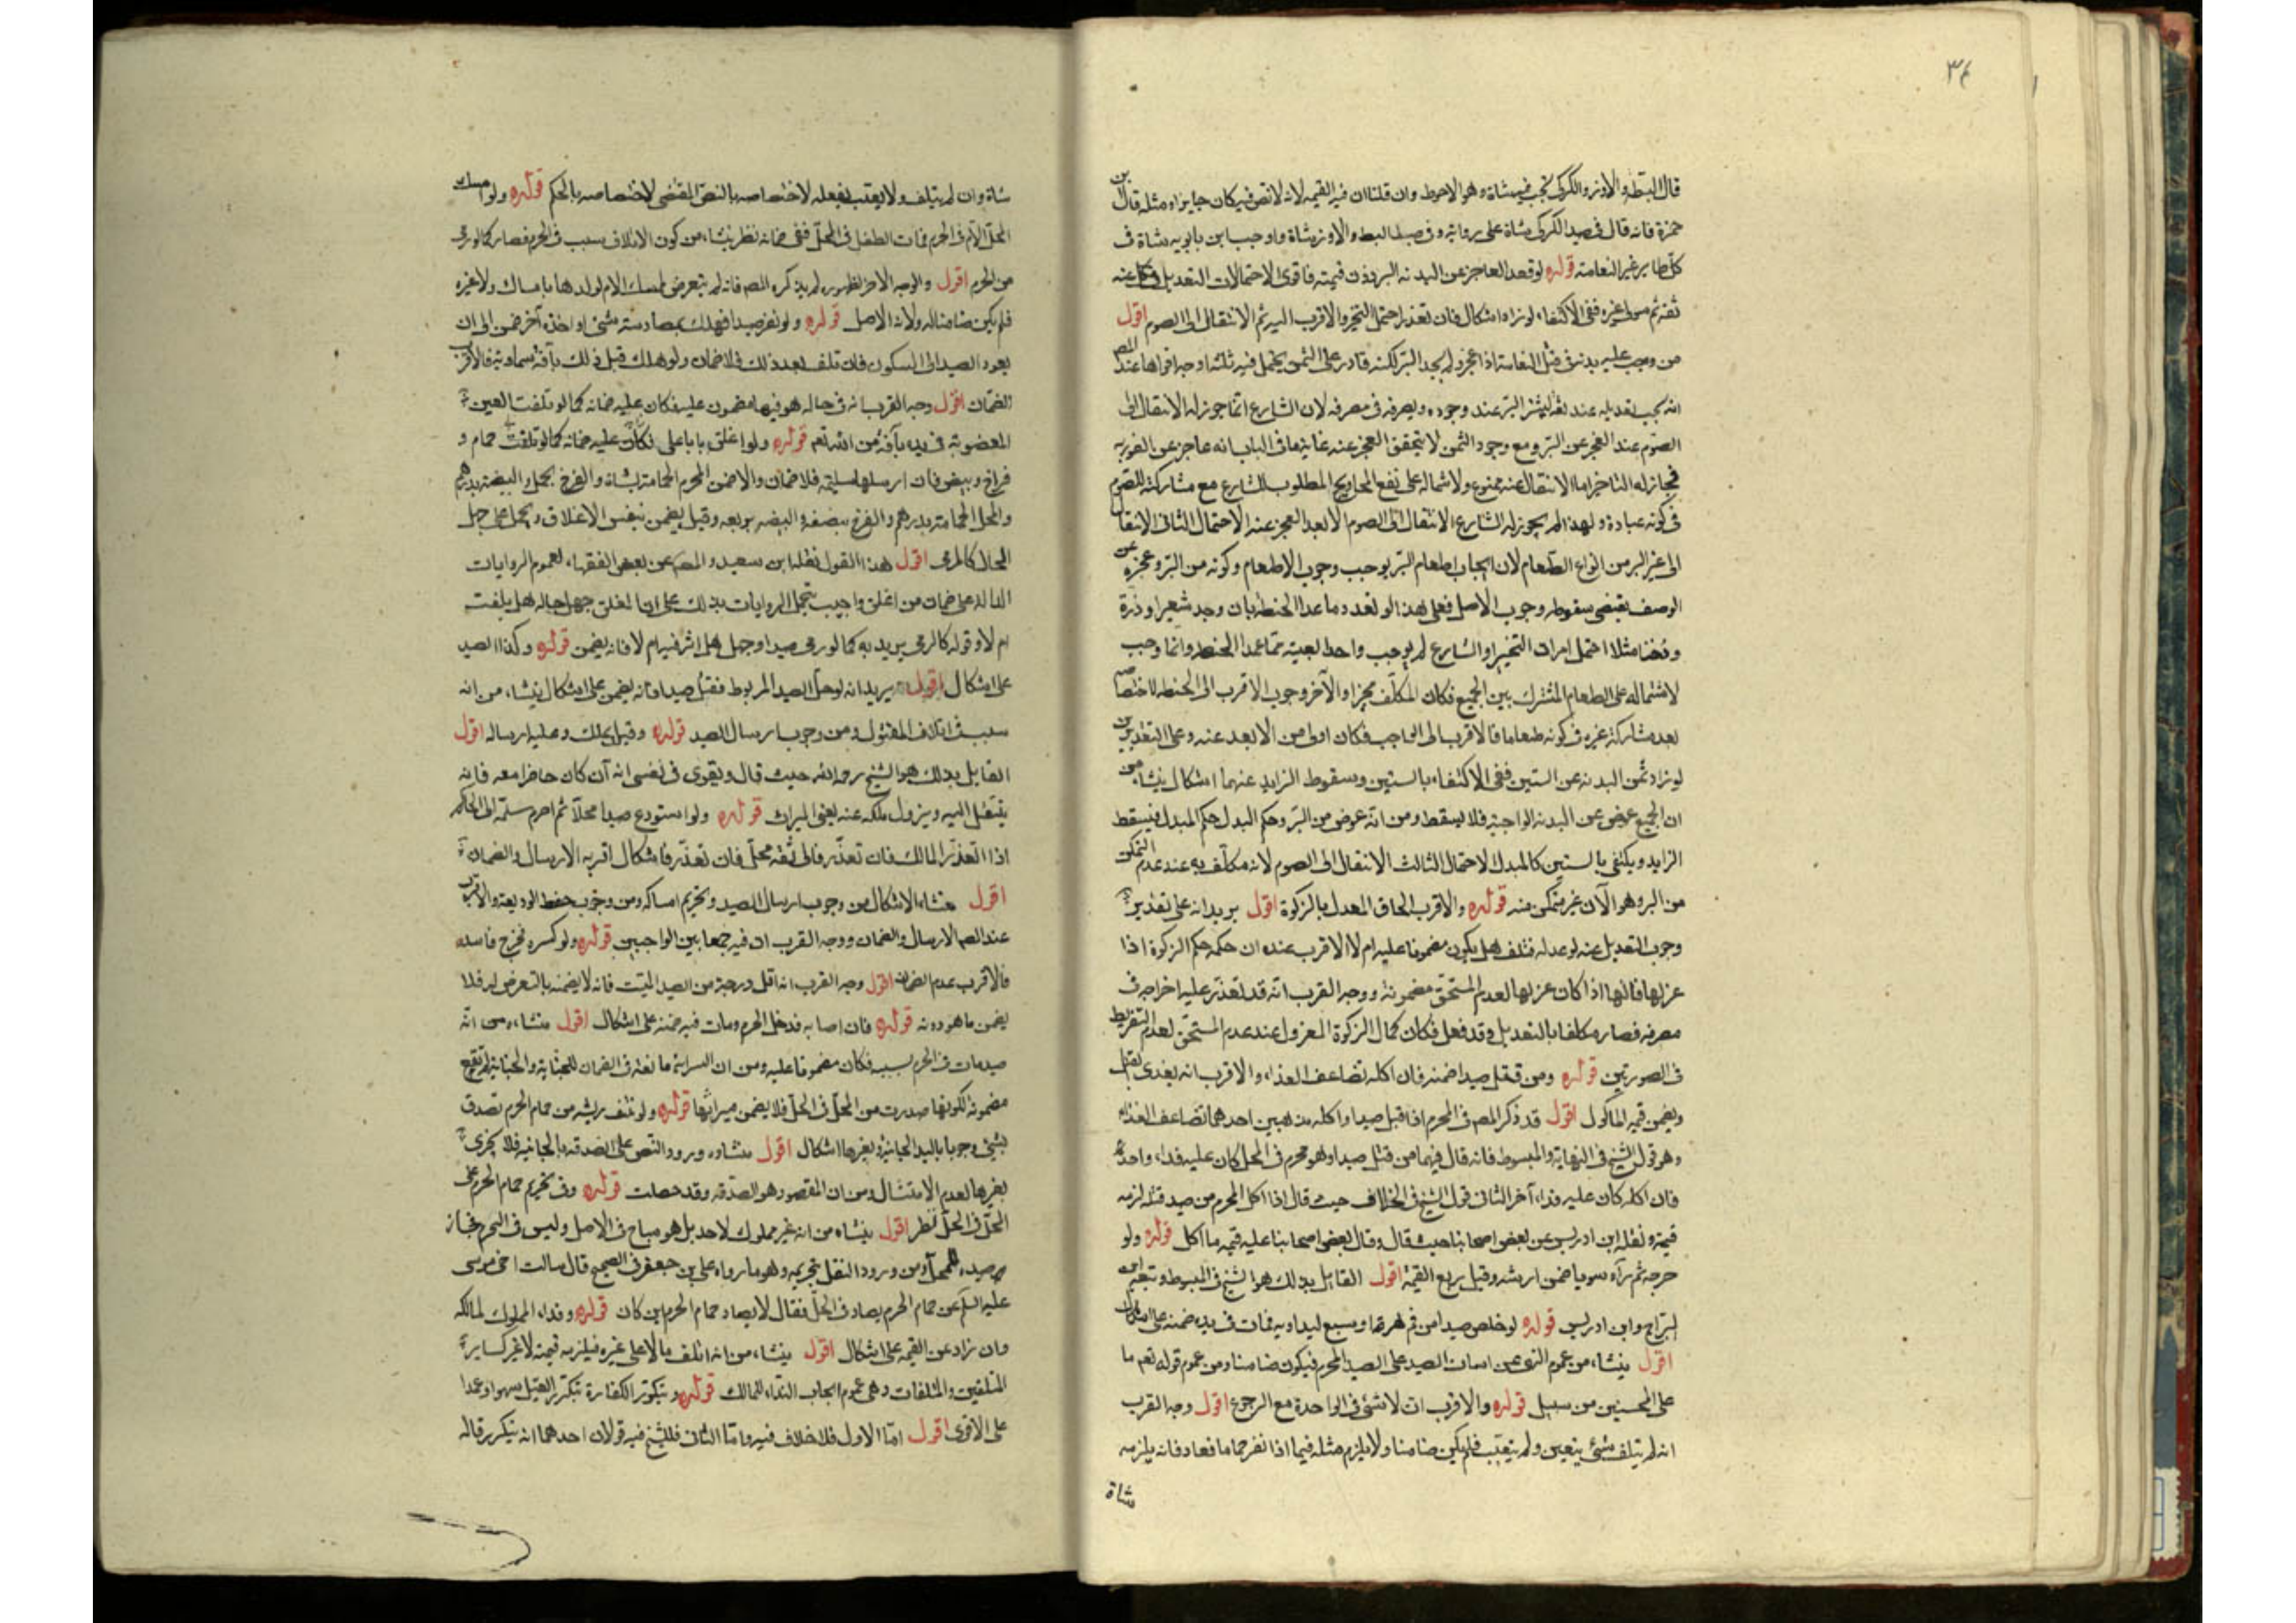 ٣٤
قال البتطه والاوز والكركى تجب فيه شاة وهو الاحوط وان قلنا ان فيه القيمه لانه لا نص فيه كان جايزا ومثله قال بن
حمزة فانه قال فى صيد الكركى شاة على رواية وفى صيد البط والاوز شاة واوجب ابن بابويه شاة فى
كل طاير غير النعامة قوله لو فقد العاجز عن البدنه البر دون قيمته فاقوى الاحتمالات التعديل عند
ثقة ثم غيره ففى الاكتفاء لو زاد اشكال فان تعذر احتمل التخيير والاقرب اليه ثم الانتقال الى الصوم اقول
من وجب عليه بدنة فى قتل النعامة اذا عجز ولم يجد البر لكنه قادر على الثمن يحتمل فيه ثلثة اوجه اقواها عند المص
انه يجب تعديله عند ثقة ليشتر البر عند وجوده ويصرفه فى مصرفه لان الشارع انما جوز له الانتقال الى
الصوم عند العجز عن البر ومع وجود الثمن لا يتحقق العجز عنه غاية ما فى الباب انه عاجز عن الفورية
فجاز له التاخير اما الانتقال عنه ممنوع ولاشماله على نفع المحاويج المطلوب للشارع مع مشاركته للصوم
فى كونه عبادة ولهذا لم يجوز له الشارع الانتقال الى الصوم الا بعد العجز عنه الاحتمال الثانى الانتقال
الى غير البر من انواع الطعام لان ايجاب اطعام البر يوجب وجوب الاطعام وكونه من البر وعجزه عن
الوصف يقتضى سقوطه وجوب الاصل فعلى هذا لو تعدد ما عدا الحنطه بان وجد شعيرا وذرة
ودخنا مثلا احتمل امران التخيير اذ الشارع لم يوجب واحدا بعينه مما عدا الحنطه وانما وجب
لاشتماله على الطعام المشترك بين الجميع فكان المكلف مخيرا والآخر وجوب الاقرب الى الحنطه لاختصاصه
بعد مشاركة غيره فى كونه طعاما فالاقرب الى الواجب فكان اولى من الابعد عنه وعلى التقديرين
لو زاد ثمن البدنه عن الستين ففى الاكتفاء بالستين وسقوط الزايد عنهما اشكال ينشاء من
ان الجميع عوض عن البدنه الواجبة فلا يسقط ومن انه عوض من البر وحكم البدل حكم المبدل فيسقط
الزايد ويكتفى بالستين كالمبدل الاحتمال الثالث الانتقال الى الصوم لانه مكلف به عند عدم التمكن
من البر وهو الآن غير متمكن منه قوله والاقرب الحاق المعدل بالزكوة اقول يريد انه على تقدير
وجوب التعديل عنه لو عدله فتلف هل يكون مضمونا عليه ام لا الاقرب عنده ان حكمه حكم الزكوة اذا
عزلها فانها اذا كان عزلها لعدم المستحق مضمونة ووجه القرب انه قد تعذر عليه اخراجه فى
مصرفه فصار مكلفا بالتعديل وقد فعل فكان كمال الزكوة المعزول عند عدم المستحق لعدم التفريط
فى الصورتين قوله ومن قتل صيدا ضمنه فان اكله تضاعف الفداء والاقرب انه يفدى القتيل
ويضمن قيمة الماكول اقول قد ذكر المص فى المحرم اذا قتل صيدا واكله مذهبين احدهما تضاعف الفداء
وهو قول الشيخ فى النهاية والمبسوط فانه قال فيهما من قتل صيدا وهو محرم فى الحل كان عليه فداء واحد
فان اكله كان عليه فداء آخر الثانى قول الشيخ فى الخلاف حيث قال اذا اكل المحرم من صيد قتله لزمه
قيمته ونقله ابن ادريس عن بعض اصحابنا حيث قال وقال بعض اصحابنا عليه قيمة ما اكل قوله ولو
جرحه ثم رآه سويا ضمن ارشه وقيل ربع القيمة اقول القايل بذلك هو الشيخ فى المبسوط وتبعه ابن
البراج وابن ادريس قوله لو خلص صيدا من فم هرة او سبع ليداويه فمات فى يده ضمنه على اشكال
اقول ينشاء من عموم النهى عن امساك الصيد على الصيد المحرم فيكون ضامنا ومن عموم قوله تعم ما
على المحسنين من سبيل قوله والاقرب ان لا شئ فى الواحدة مع الرجوع اقول وجه القرب
انه لم يتلف شئ بتعين ولم يتعيب فلم يكن ضامنا ولا يلزم مثله فيما اذا نفر حماما فعاد فانه يلزمه
شاة
شاة وان لم يتلف ولا يعيب بفعله لاختصاصه بالنص المقتضى لاختصاصه بالحكم قوله ولو امسك
المحل الام فى الحرم فمات الطفل فى الحل ففى ضمانه نظر ينشاء من كون الاتلاف بسبب فى الحرم فصار كما لو رمى
من الحرم اقول والوجه الاخر لظهوره لم يذكره المص فانه لم يتعرض لمسك الام لولدها بامساك ولا غيره
فلم يكن ضامنا له ولانه الاصل قوله ولو نفر صيدا فهلك بمصادمته شئ او اخذه آخر ضمن الى ان
يعود الصيد الى السكون فان تلف بعد ذلك فلا ضمان ولو هلك قبل ذلك بآفة سماوية فالاقرب
الضمان اقول وجه القرب انه فى حاله هو فيها مضمون عليه فكان عليه ضمانه كما لو تلفت العين
المغصوبة فى يده بآفة من الله تعم قوله ولو اغلق بابا على حمام و
فراخ وبيض فان ارسلها سليمة فلا ضمان والا ضمن المحرم الحمامة بشاة والفرخ بحمل والبيضة بدرهم
والمحل الحمامة بدرهم والفرخ بنصفه والبيضه بربعه وقيل يضمن بنفس الاغلاق ويحمل على جهل
الحال كالرمى اقول هذا القول نقله ابن سعيد والمص عن بعض الفقهاء لعموم الروايات
الدالة على ضمان من اغلق واجيب بتحمل الروايات بذلك على ان المغلق جهل حاله هل يلفت
ام لا وقوله كالرمى يريد به كما لو رمى صيدا وجهل هل اثر فيه ام لا فانه يضمن قوله وكذا الصيد
على اشكال اقول يريد انه لو حل الصيد المربوط فقتل صيدا فانه يضمن على اشكال ينشاء من انه
سبب فى اتلاف المقتول ومن وجوب ارسال الصيد قوله وقيل يملك وعليه ارساله اقول
القايل بذلك هو الشيخ رحمه الله حيث قال ويقوى فى نفسى انه ان كان حاضرا معه فانه
ينتقل اليه ويزول ملكه عنه يعنى الميراث قوله ولو استودع صيدا محلا ثم احرم سلمه الى الحاكم
اذا تعذر المالك فان تعذر فالى ثقة محل فان تعذر فاشكال اقربه الارسال والضمان
اقول منشاء الاشكال من وجوب ارسال الصيد وتحريم امساكه ومن وجوب حفظ الوديعة والاقرب
عند المص الارسال والضمان ووجه القرب ان فيه جمعا بين الواجبين قوله ولو كسره فخرج فاسدا
فالاقرب عدم الضمان اقول وجه القرب انه اقل درجة من الصيد الميت فانه لا يضمنه بالتعرض له فلا
يضمن ما هو دونه قوله فان اصابه فدخل الحرم ومات فيه ضمنه على اشكال اقول منشاءه من انه
صيد مات فى الحرم بسببه فكان مضمونا عليه ومن ان السراية مانعة فى الضمان للجناية والجناية لم تقع
مضمونة لكونها صدرت من المحل فى الحل فلا يضمن ميراثها قوله ولو نتف ريشه من حمام الحرم تصدق
بشئ وجوبا باليد الجانية وبغيرها اشكال اقول منشاءه ورود النص على الصدقه بالجانية فلا يجزى
بغيرها لعدم الامتثال ومن ان المقصود هو الصدقه وقد حصلت قوله وفى تحريم حمام الحرم على
المحل فى الحل نظر اقول ينشاء من انه غير مملوك لاحد بل هو مباح فى الاصل وليس فى الحرم فجاز
صيده للمحل ومن ورود النقل بتحريمه وهو ما رواه على بن جعفر فى الصحيح قال سالت اخى موسى
عليه السلم عن حمام الحرم يصاد فى الحل فقال لا يصاد حمام الحرم اين كان قوله وفداء المملوك لمالكه
وان زاد عن القيمه على اشكال اقول ينشاء من انه اتلف مالا على غيره فيلزمه قيمته لا غير كساير
المتلفين والمتلفات وهى عموم ايجاب الفداء للمالك قوله ويتكرر الكفارة بتكرر القتل سهوا وعمدا
على الاقوى اقول اما الاول فلا خلاف فيه واما الثانى فللشيخ فيه قولان احدهما انه يتكرر قاله